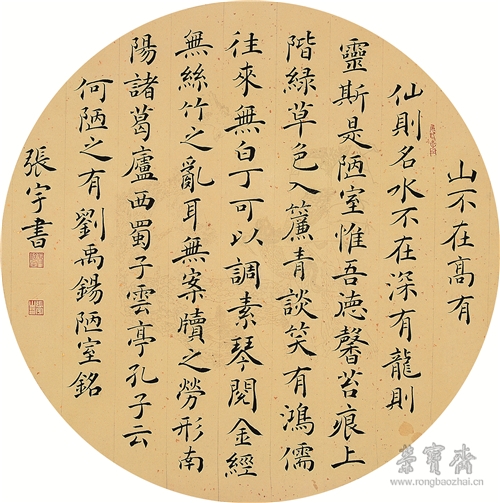 山不在高有
仙則名水不在深有龍則
靈斯是陋室惟吾德馨苔痕上
階緑草色入簾青談笑有鴻儒
往來無白丁可以調素琴閱金經
無絲竹之亂耳無案牘之勞形南
陽諸葛廬西蜀子雲亭孔子云
何陋之有劉禹錫陋室銘
張宇書
榮寶齋
www.rongbaozhai.cn